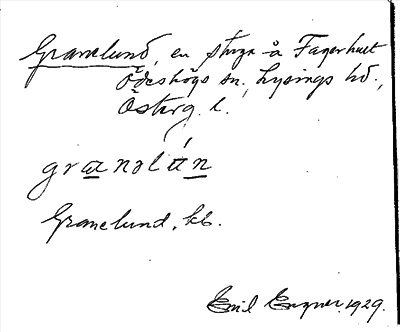 Granelund, en stuga å Fagerhult
Ödeshögs sn, Lysings hd.,
Österg. l.
grænəlán
Granelund, kb.
Emil Engner. 1929.